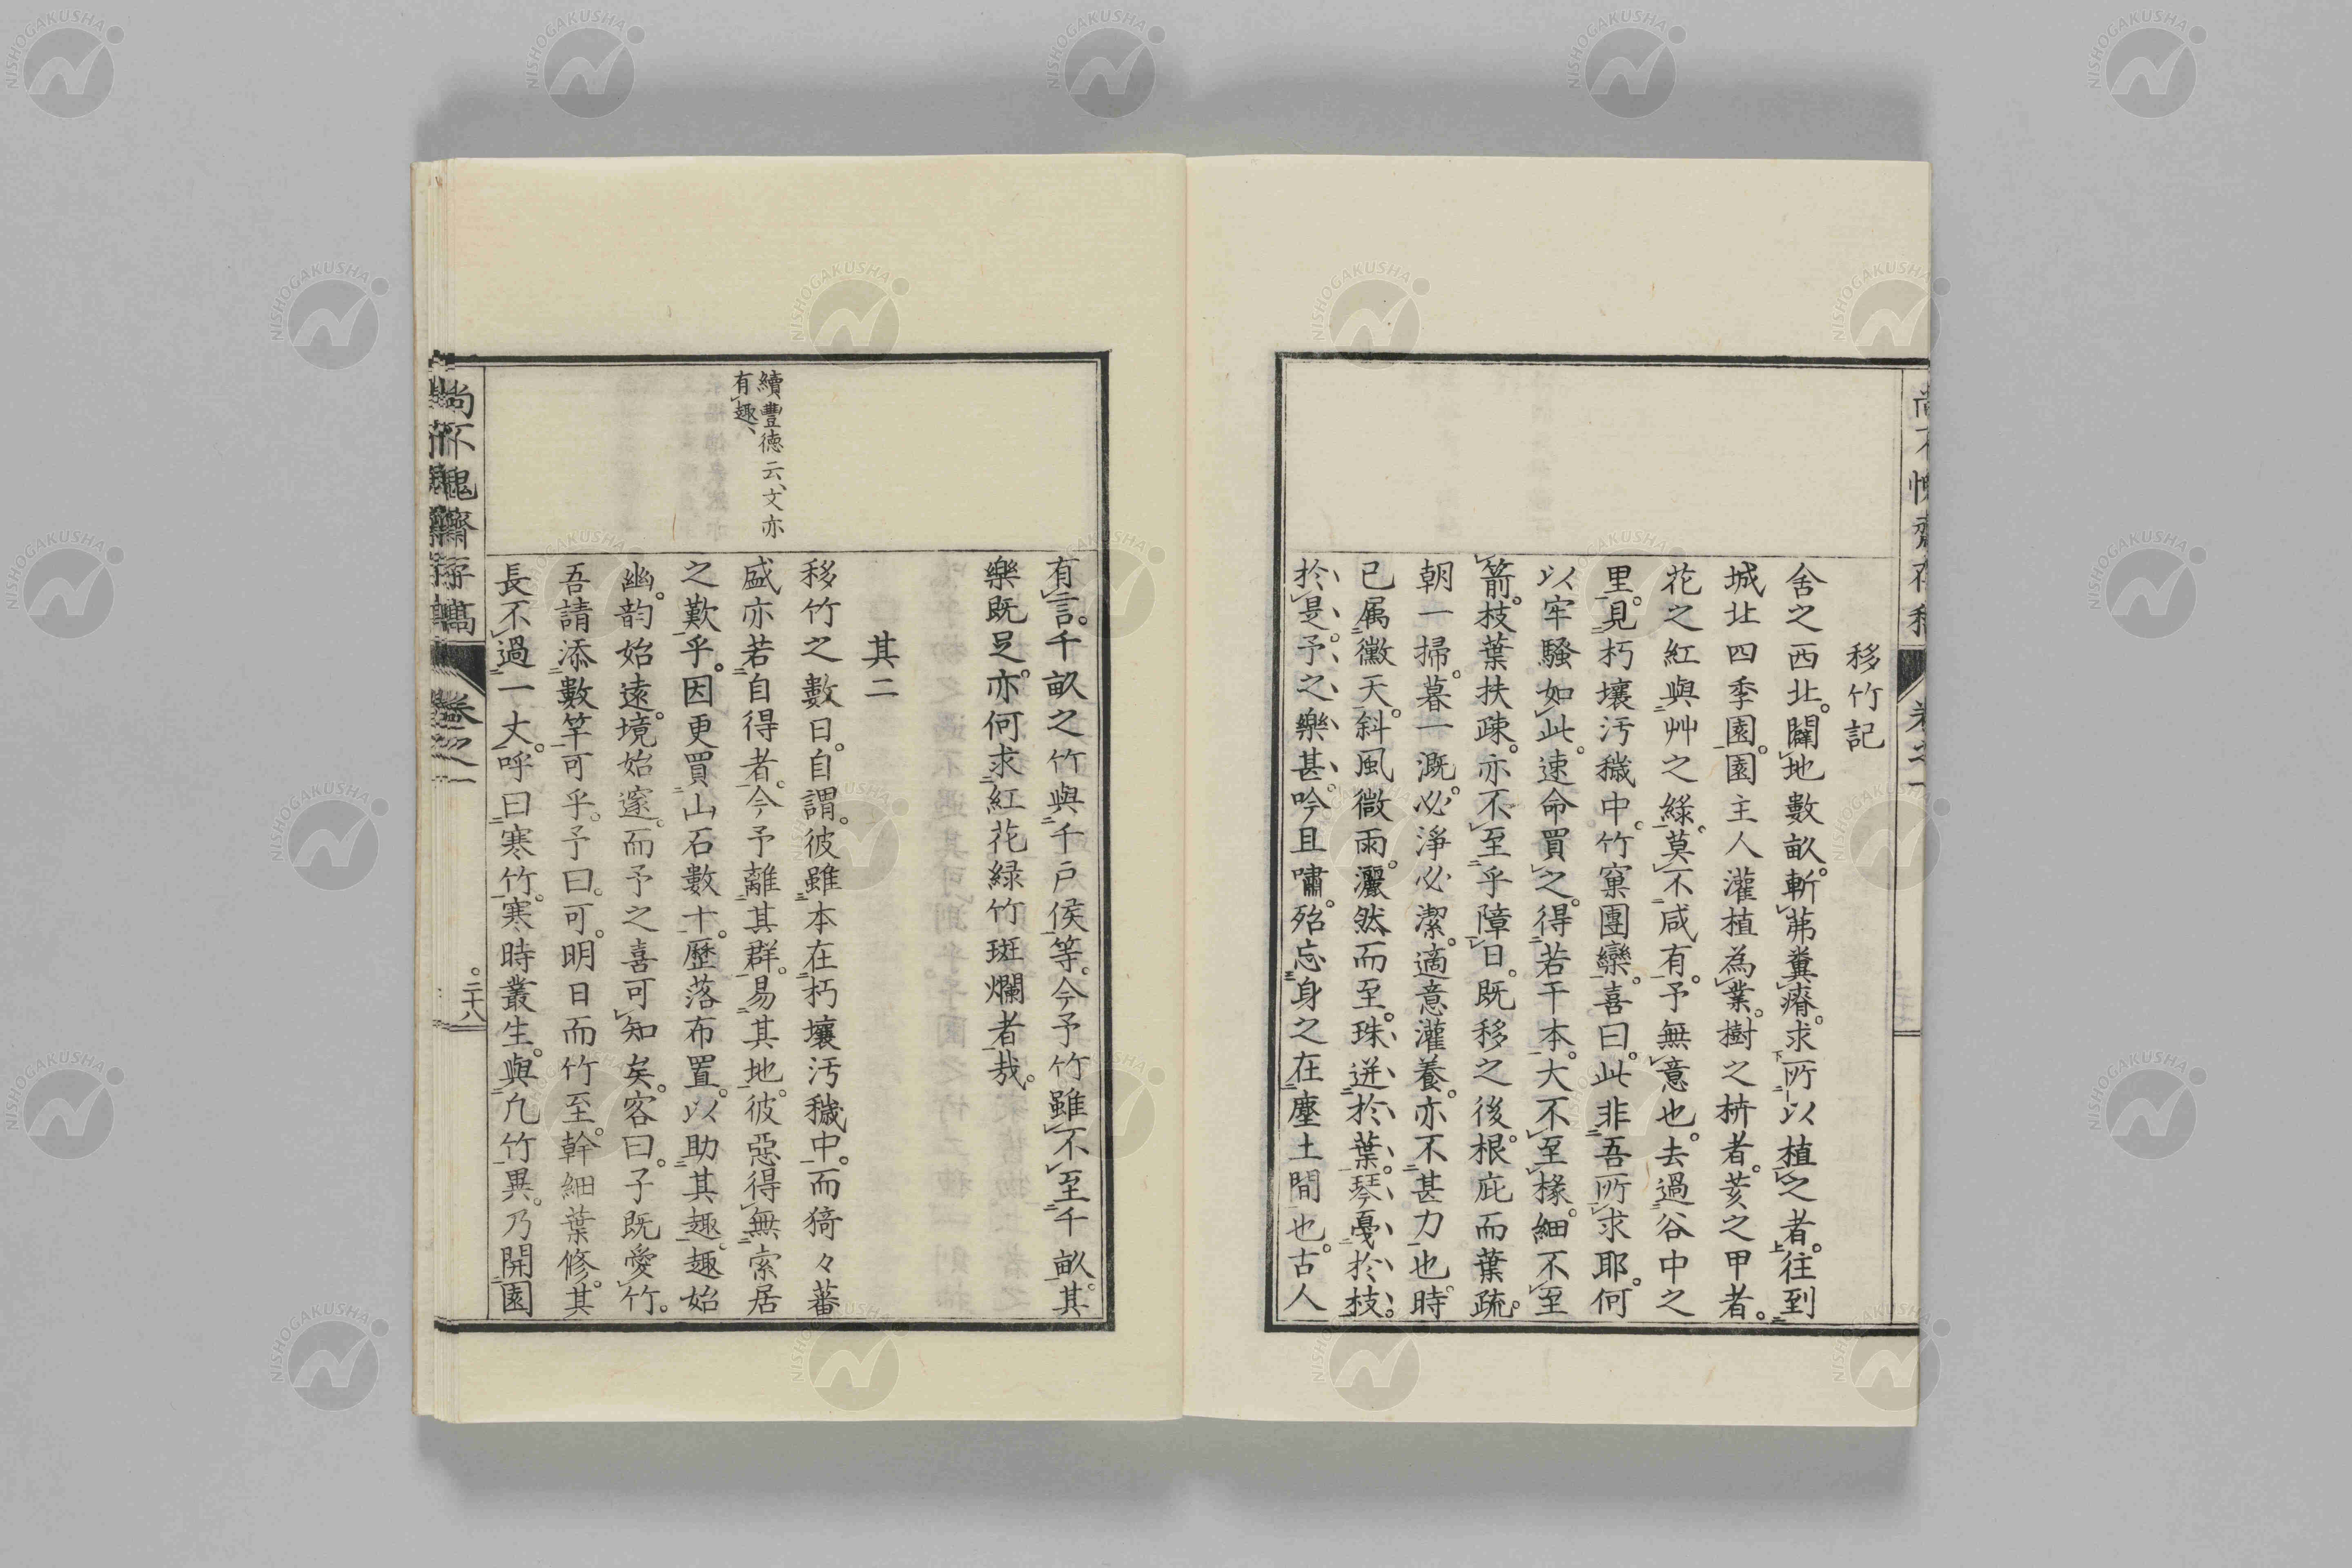 移竹記
舍之西北。闢地數畝。斬茀糞瘠。求所以植之者。往到
城北四季園。園主人灌植為業。樹之枅者。荄之甲者。
花之紅與艸之綠。莫不咸有。予無意也。去過谷中之
里。見朽壤汚穢中。竹窠團欒。喜曰。此非吾所求耶。何
以牢騷如此。速命買之。得若干本。大不至椽。細不至
箭。枝葉扶疎。亦不至乎障日。既移之後。根庇而葉疏。
朝一掃。暮一漑。必淨必潔。適意灌養。亦不甚力也。時
已属黴天。斜風微雨。灑然而至。珠迸於葉。琴戞於枝。
於是予之樂甚。吟且嘯。殆忘身之在塵土間也。古人
有言。千畝之竹與千戶侯等。今予竹雖不至千畝。其
樂既足。亦何求紅花緑竹斑爛者哉。
其二
移竹之數日。自謂。彼雖本在朽壤汚穢中。而猗々蕃
盛亦若自得者。今予離其群。易其地。彼惡得無索居
之歎乎。因更買山石數十。歷落布置。以助其趣。趣始
幽。韵始遠。境始邃。而予之喜可知矣。客曰。子既愛竹。
吾請添數竿可乎。予曰。可。明日而竹至。幹細葉修。其
長不過一丈。呼曰寒竹。寒時叢生。與凢竹異。乃開園
續豐德云、文亦
有趣、
尚不愧齋存稿
卷之一
二十八